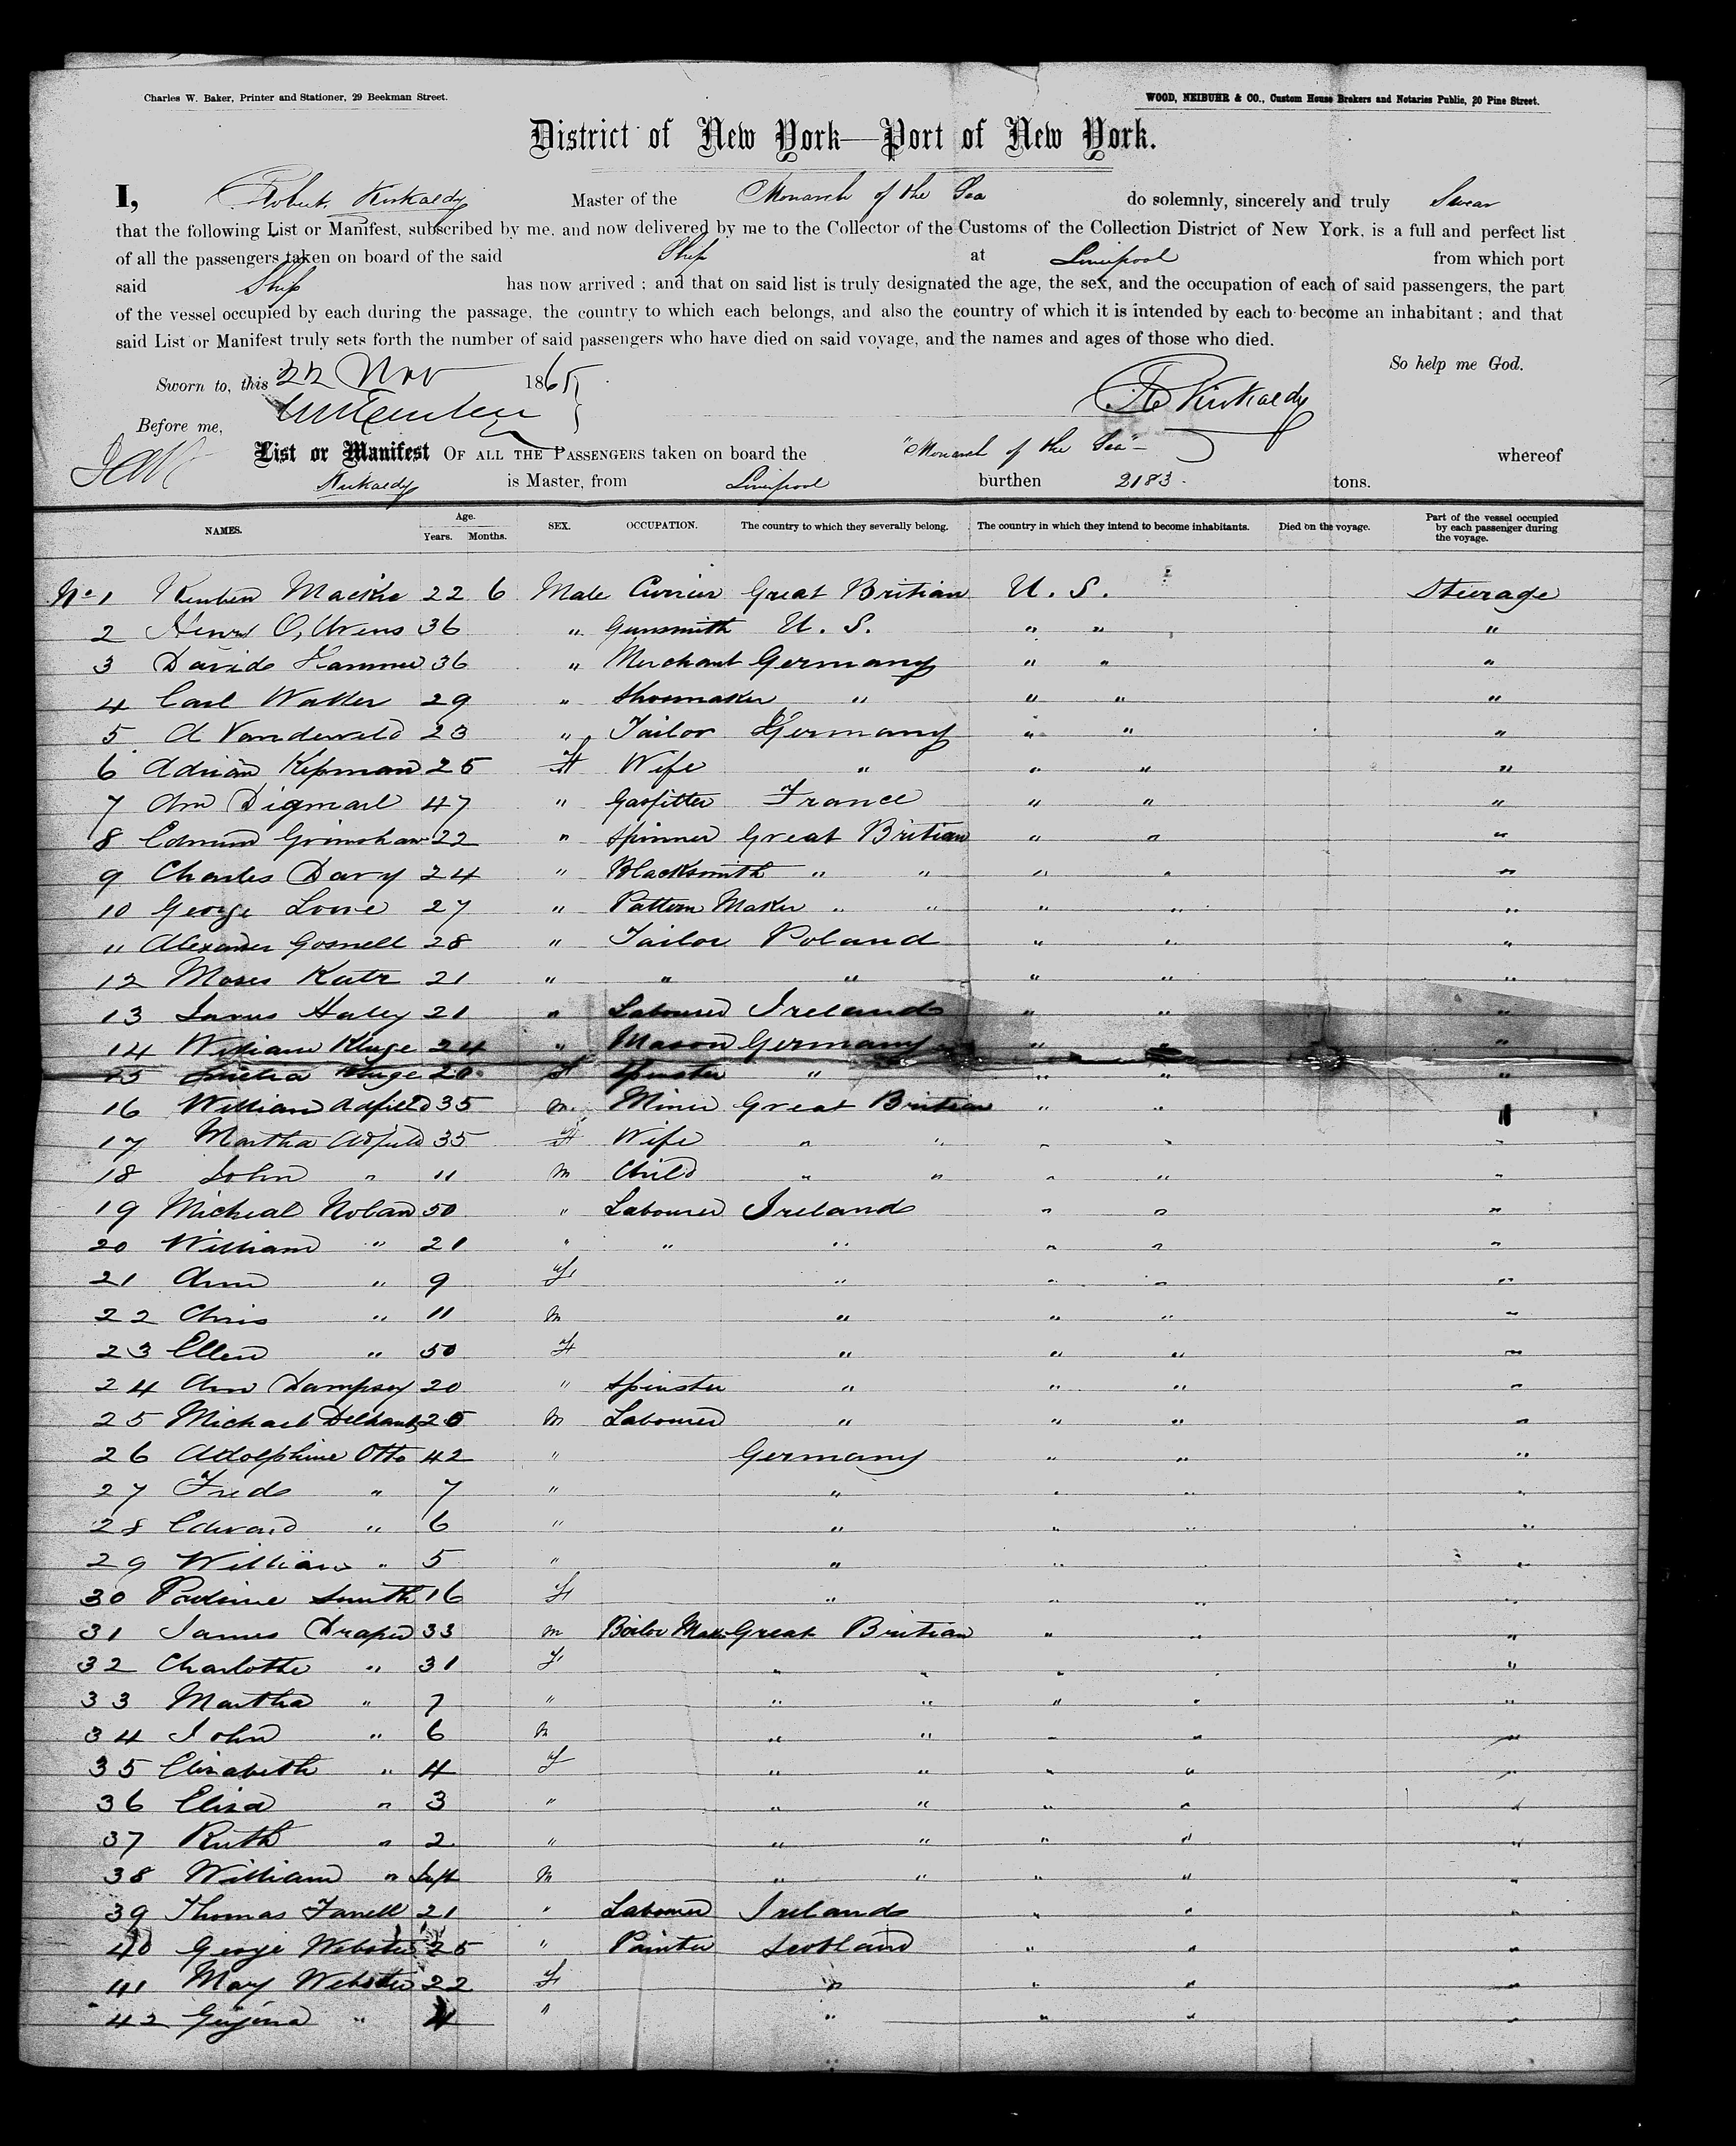 Charles W. Baker, Printer and Stationer, 29 Beekman Street.
WOOD, NEIBUHR & CO., Custom House Brokers and Notaries Public, 20 Pine Street.
District of New York—Port of New York.
I, Robert Kirkaldy Master of the Monarch of the Sea do solemnly, sincerely and truly Swear
that the following List or Manifest, subscribed by me, and now delivered by me to the Collector of the Customs of the Collection District of New York, is a full and perfect list
of all the passengers taken on board of the said Ship at Liverpool from which port
said Ship has now arrived ; and that on said list is truly designated the age, the sex, and the occupation of each of said passengers, the part
of the vessel occupied by each during the passage, the country to which each belongs, and also the country of which it is intended by each to become an inhabitant ; and that
said List or Manifest truly sets forth the number of said passengers who have died on said voyage, and the names and ages of those who died.
So help me God.
Sworn to, this 22 Nov 1865
R Kirkaldy
Before me,
List or Manifest OF ALL THE PASSENGERS taken on board the "Monarch of the Sea" whereof
Kirkaldy is Master, from Liverpool burthen 2183 tons.
NAMES. Age. Years. Months. SEX. OCCUPATION. The country to which they severally belong. The country in which they intend to become inhabitants. Died on the voyage. Part of the vessel occupied by each passenger during the voyage.
No 1 Reuben Mackie 22 6 Male Currier Great Britian U. S. Steerage
2 Henry O, Wens 36 " Gunsmith U. S. " " "
3 Davids Hammer 36 " Merchant Germany " " "
4 Carl Walker 29 " Shoemaker " " " "
5 A Vanderveld 23 " Tailor Germany " " "
6 Adrian Kipman 25 F Wife " " " "
7 Am Digmail 47 " Gasfitter France " " "
8 Edmund Grimshaw 22 " Spinner Great Britian " " "
9 Charles Davy 24 " Blacksmith " " " " "
10 George Lowe 27 " Pattern Maker " " " " "
11 Alexander Gosnell 28 " Tailor Poland " " "
12 Moses Katz 21 " " " " " "
13 James Haley 21 " Labourer Ireland " " "
14 William Kluge 24 " Mason Germany " " "
15 Kluge 20 F Spinster " " " "
16 William Adfield 35 M. Miner Great Britian " " "
17 Martha Adfield 35 F Wife " " " " "
18 John " 11 M Child " " " " "
19 Micheal Nolan 50 " Labourer Ireland " " "
20 William " 21 " " " " " "
21 Ann " 9 F " " " "
22 Chris " 11 M " " " "
23 Ellen " 50 F " " " "
24 Ann Dampsey 20 " Spinster " " " "
25 Michael Delhanty 25 M Labourer " " " "
26 Adolphine Otto 42 " Germany " " "
27 Fred " 7 " " " " "
28 Edward " 6 " " " " "
29 William " 5 " " " " "
30 Pauline Smith 16 F " " " "
31 James Draper 33 M Boiler Maker Great Britian " " "
32 Charlotte " 31 F " " " " "
33 Martha " 7 " " " " " "
34 John " 6 M " " " " "
35 Elizabeth " 4 F " " " " "
36 Eliza " 3 " " " " " "
37 Ruth " 2 " " " " " "
38 William " Inft M " " " " "
39 Thomas Farrell 21 " Labourer Ireland " " "
40 George Webster 25 " Painter Scotland " " "
41 Mary Webster 22 F " " " "
42 " 4 " " " " "